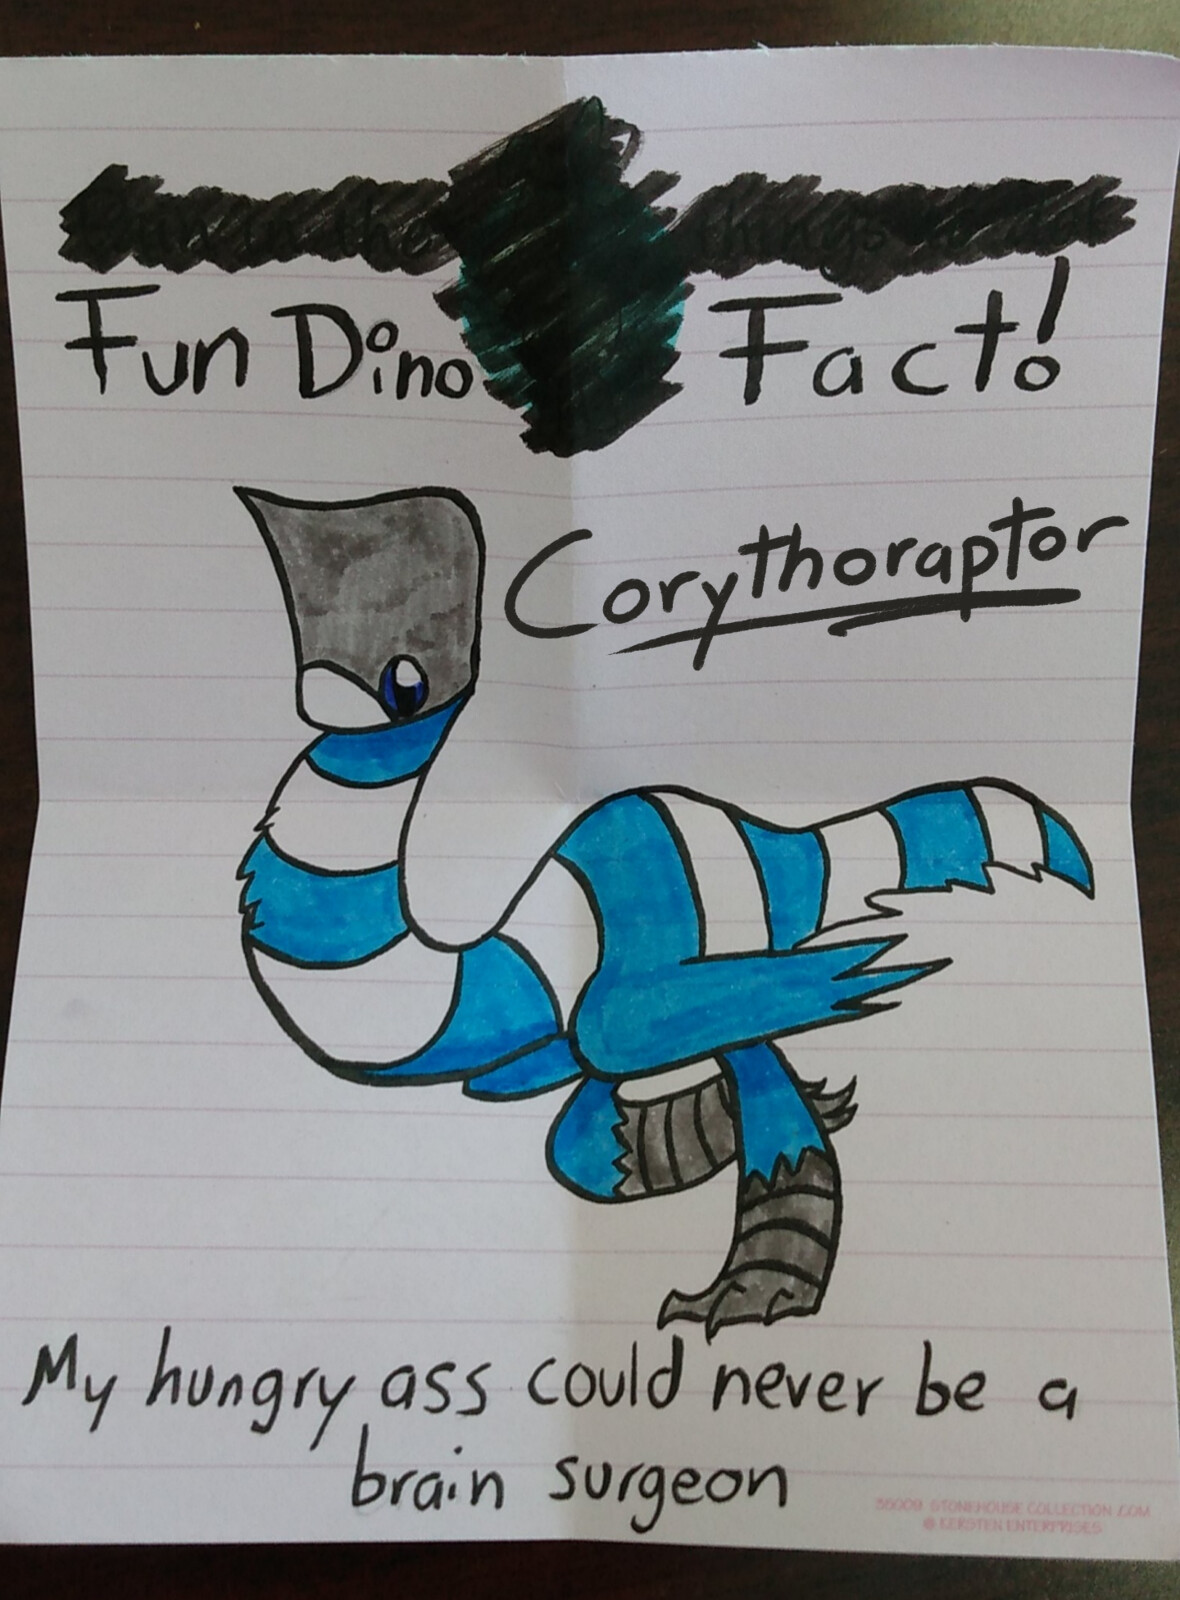 in the things to
Fun Dino Fact!
Corythoraptor
My hungry ass could never be a
brain surgeon
35009 STONEHOUSE COLLECTION.COM
© KERSTEN ENTERPRISES